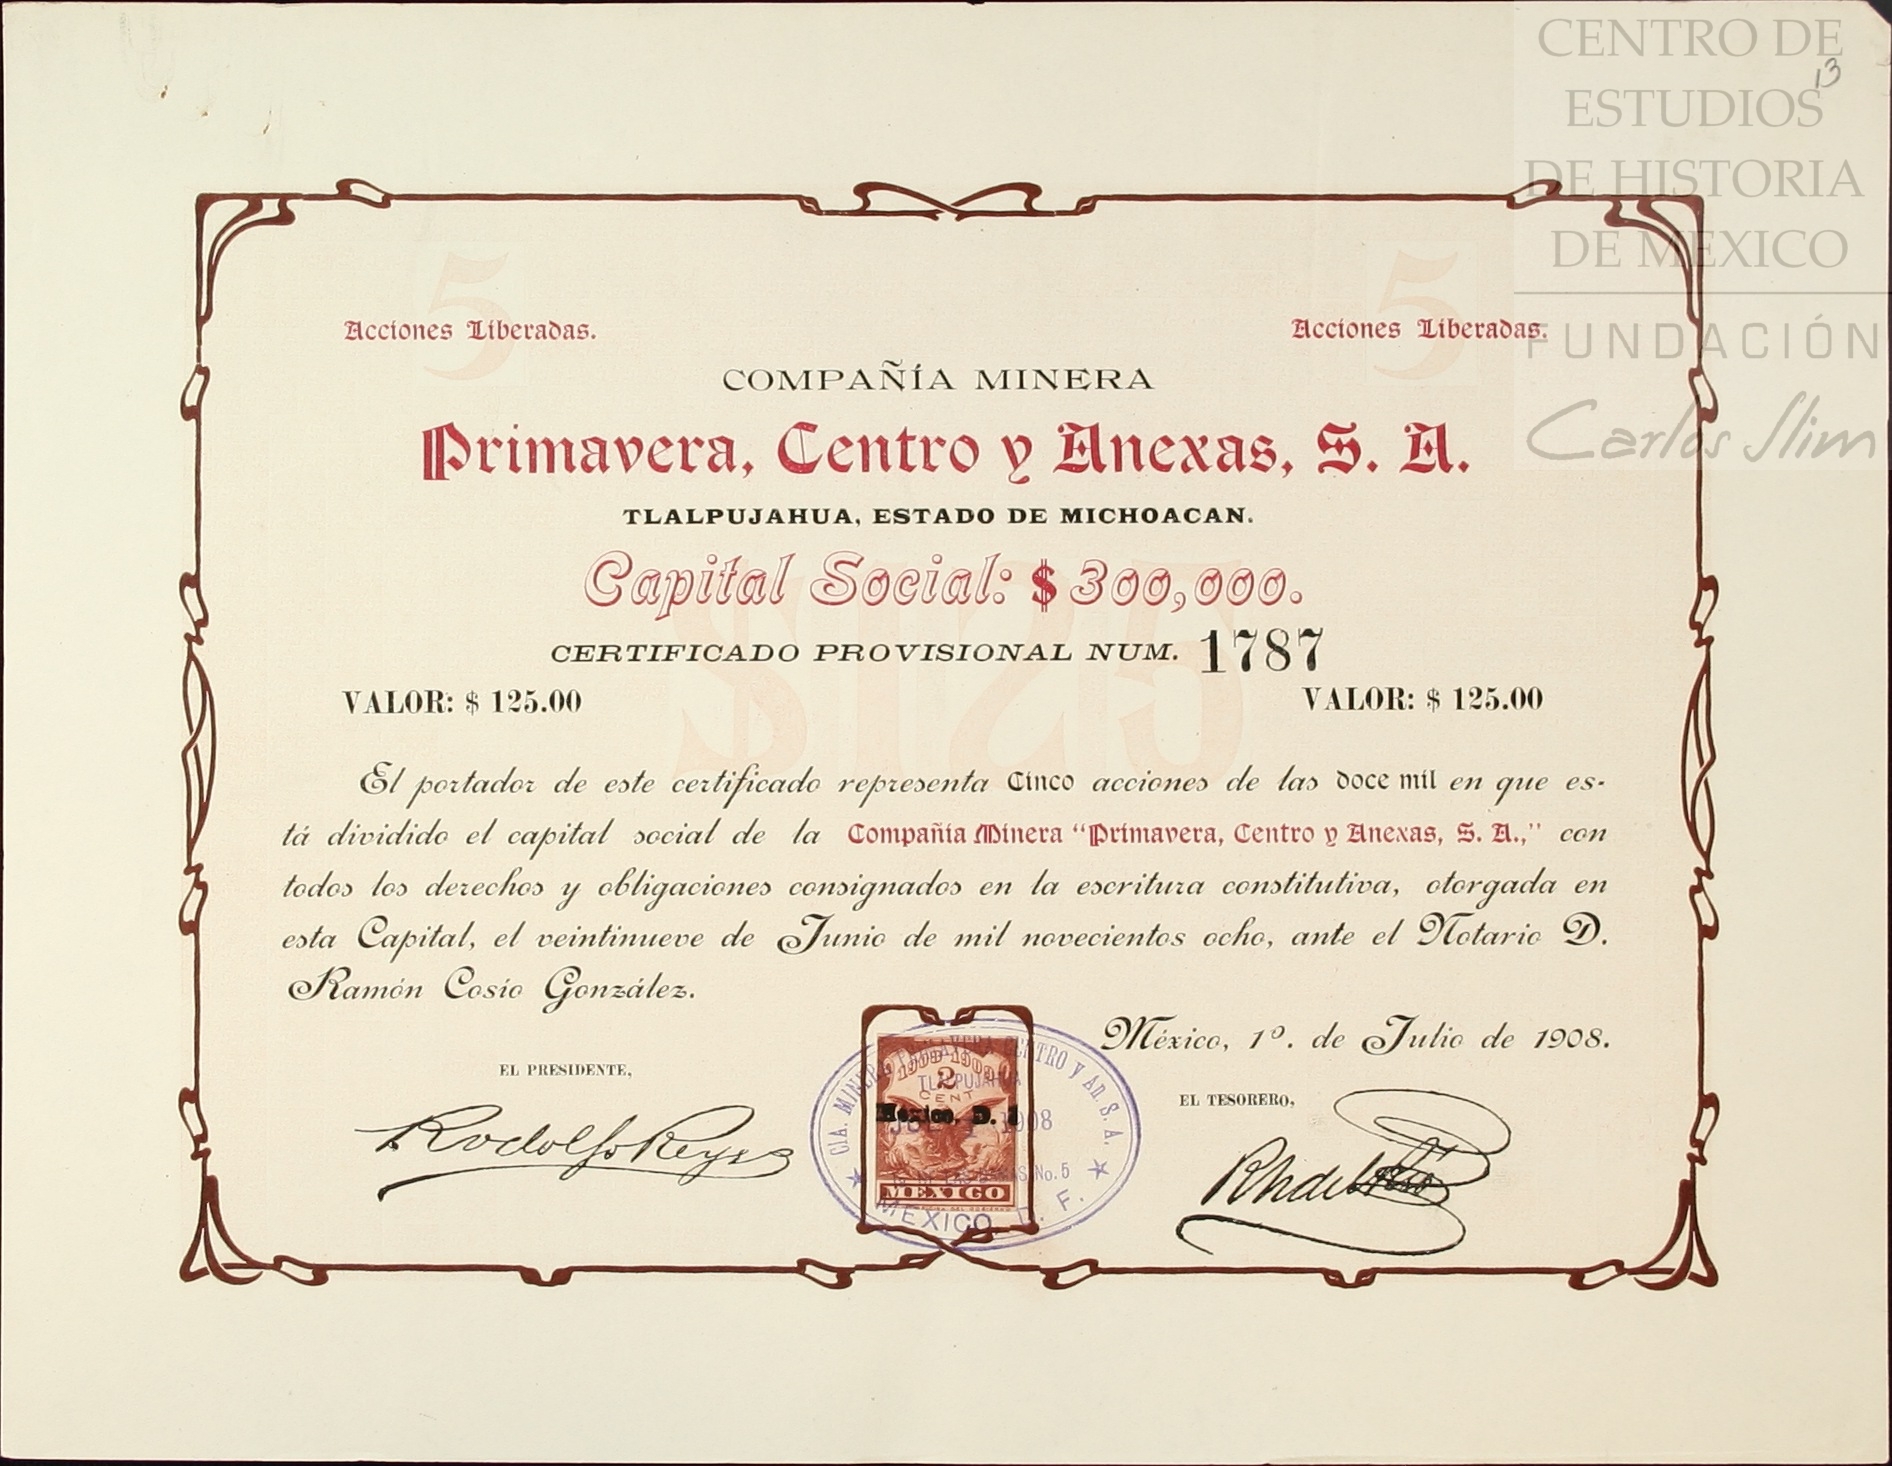 CENTRO DE
ESTUDIOS
DE HISTORIA
DE MEXICO
FUNDACIÓN
Carlos Slim
13
5
5
Acciones Liberadas.
Acciones Liberadas.
COMPAÑÍA MINERA
Primavera, Centro y Anexas, S. A.
TLALPUJAHUA, ESTADO DE MICHOACAN.
Capital Social: $ 300,000.
CERTIFICADO PROVISIONAL NUM. 1787
$125
VALOR: $ 125.00
VALOR: $ 125.00
El portador de este certificado representa Cinco acciones de las doce mil en que es-
tá dividido el capital social de la Compañía Minera “Primavera, Centro y Anexas, S. A.,” con
todos los derechos y obligaciones consignados en la escritura constitutiva, otorgada en
esta Capital, el veintinueve de Junio de mil novecientos ocho, ante el Notario D.
Ramón Cosío González.
México, 1º. de Julio de 1908.
EL PRESIDENTE,
Rodolfo Reyes
EL TESORERO,
CIA. MINERA PRIMAVERA CENTRO Y AN. S. A.
TLALPUJAHUA
2
CENT
México, D.
JUL 1 1908
No. 5
MEXICO
MEXICO, D. F.